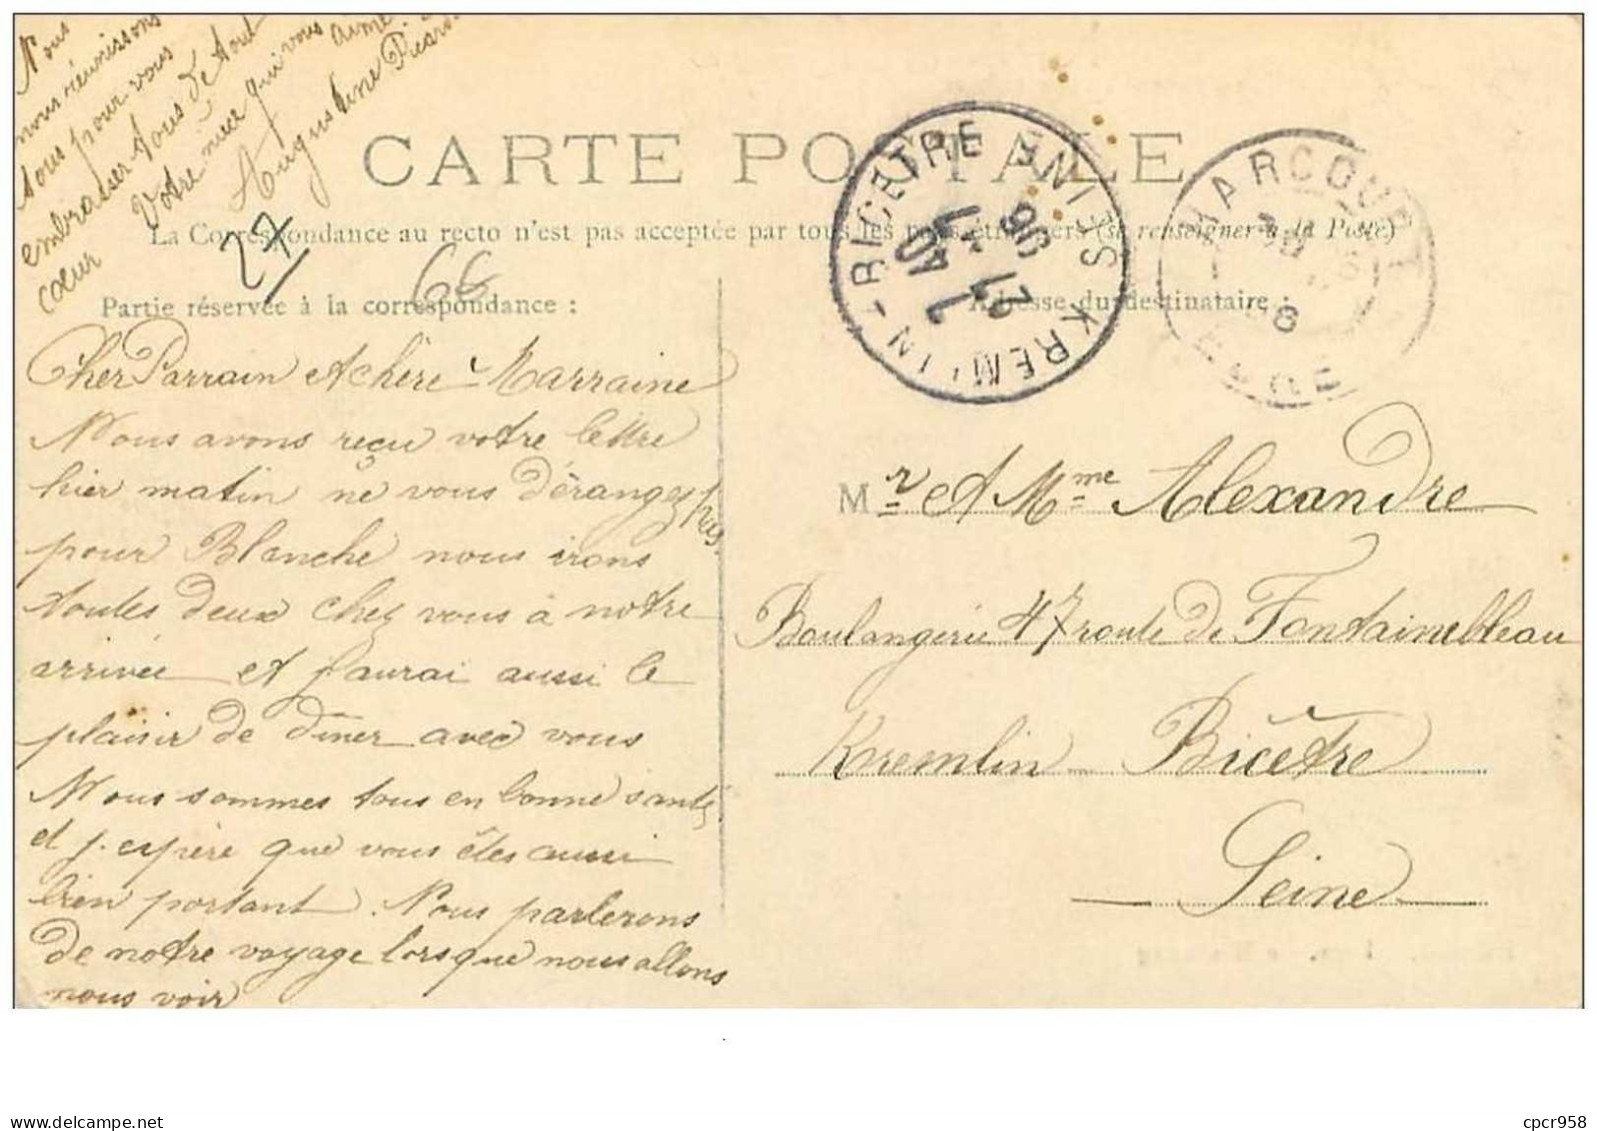 CARTE POSTALE
La Correspondance au recto n'est pas acceptée par tous les pays étrangers (se renseigner à la Poste)
Partie réservée à la correspondance :
Adresse du destinataire :
27
66
KREMLIN-BICETRE
SEINE
HARCOURT
EURE
Cher Parrain et chère Marraine
Nous avons reçu votre lettre
hier matin ne vous dérangez pas
pour Blanche nous irons
toutes deux chez vous à notre
arrivée et j'aurai aussi le
plaisir de dîner avec vous
Nous sommes tous en bonne santé
et j'espère que vous êtes aussi
bien portant. Nous parlerons
de notre voyage lorsque nous allons
nous voir
Nous
nous réunissons
tous pour vous
embrasser tous de tout
cœur
Votre nièce qui vous aime
Augustine
Mr et Mme Alexandre
Boulangerie 47 route de Fontainebleau
Kremlin Bicêtre
Seine
delcampe.net
cpcr958